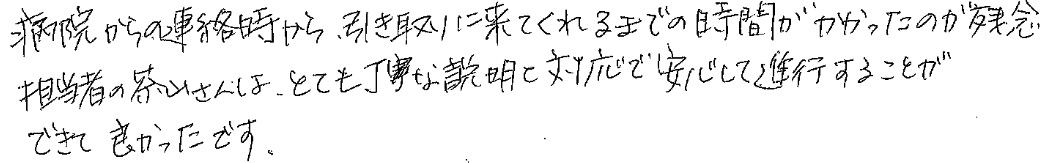 病院からの連絡時から、引き取りに来てくれるまでの時間がかかったのが残念
担当者の茶山さんは、とても丁寧な説明と対応で安心して進行することが
できて良かったです。